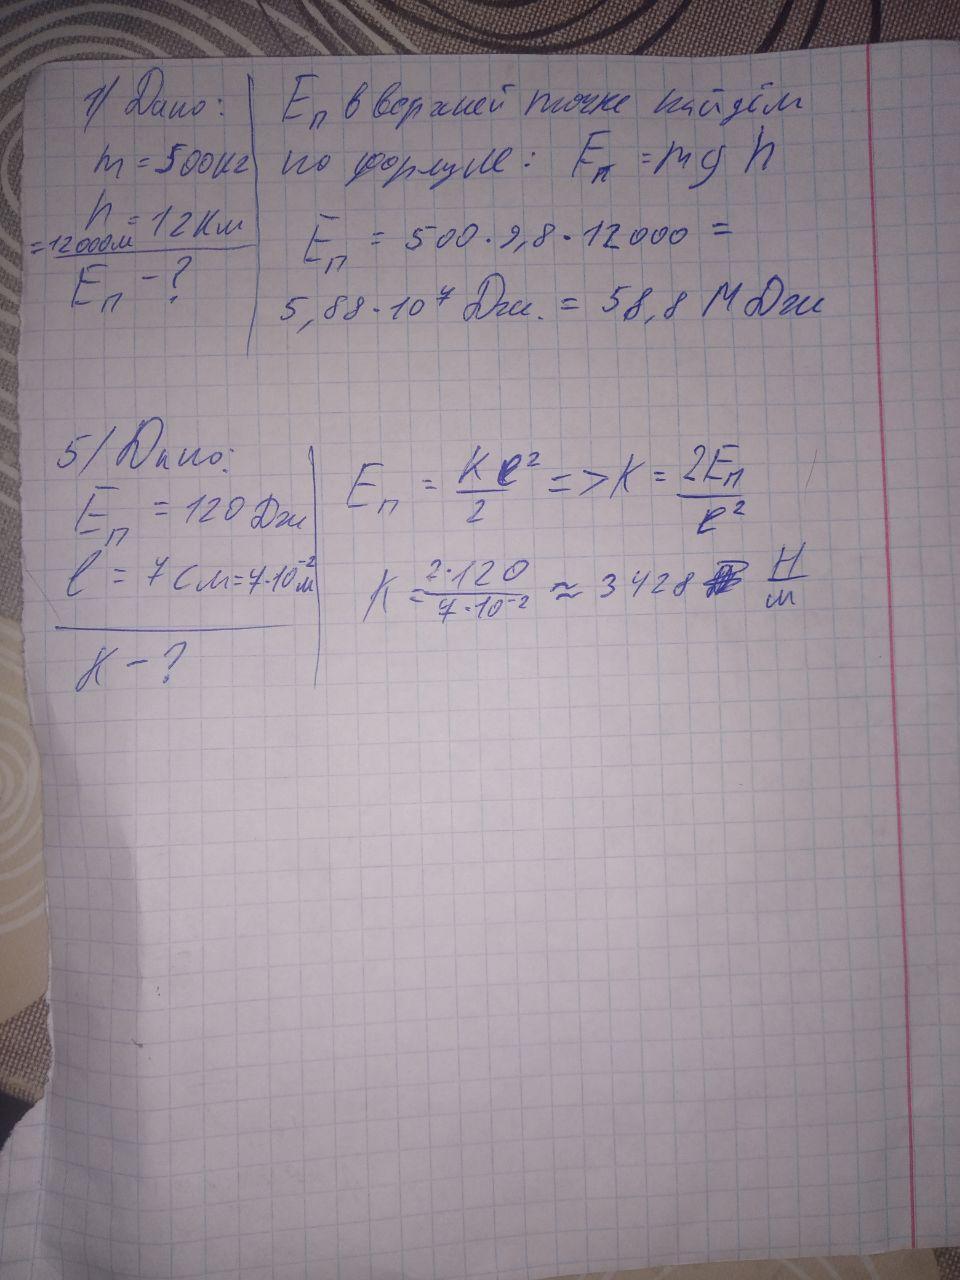 1/ Дано:
m = 500кг
h = 12 Км
= 12000м
Eп - ?
Eп в верхней точке найдём
по формуле: Eп = mgh
Eп = 500 · 9,8 · 12000 =
5,88 · 10⁷ Дж. = 58,8 МДж
5/ Дано:
Eп = 120 Дж
l = 7 см = 7·10⁻² м
К - ?
Eп = Кl²/2 => К = 2Eп/l²
К = 2·120/7·10⁻² ≈ 3428 Н/м